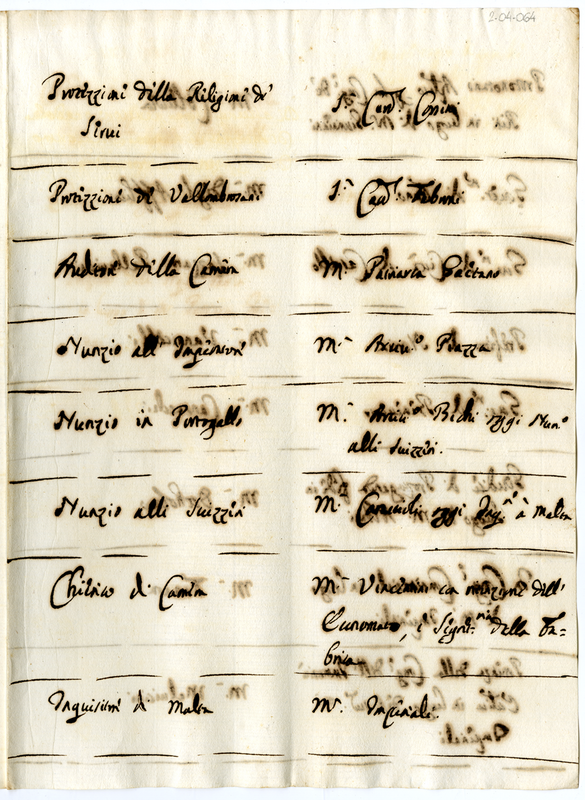 2-04-064
Protezzione della Religione de'
Servi
S.r Card. Corsini
Protezzione di Vallombrosani
S.r Card. Fabroni
Auditor della Camera
M.r Patriarca Gaetano
Nunzio all' Imperatore
M.r Arciv.o Piazza
Nunzio in Portogallo
M.r Arciv.o Bichi oggi Nun.o
alli Suizzeri.
Nunzio alli Suizzeri
M.r Caraccioli oggi Inq.re à Malta
Chierico di Camera
M.r Vincentini con ritenzione dell'
Economato, e Segret.ria della Fa=
brica
Inquisitore di Malta
M.r Imperiali.